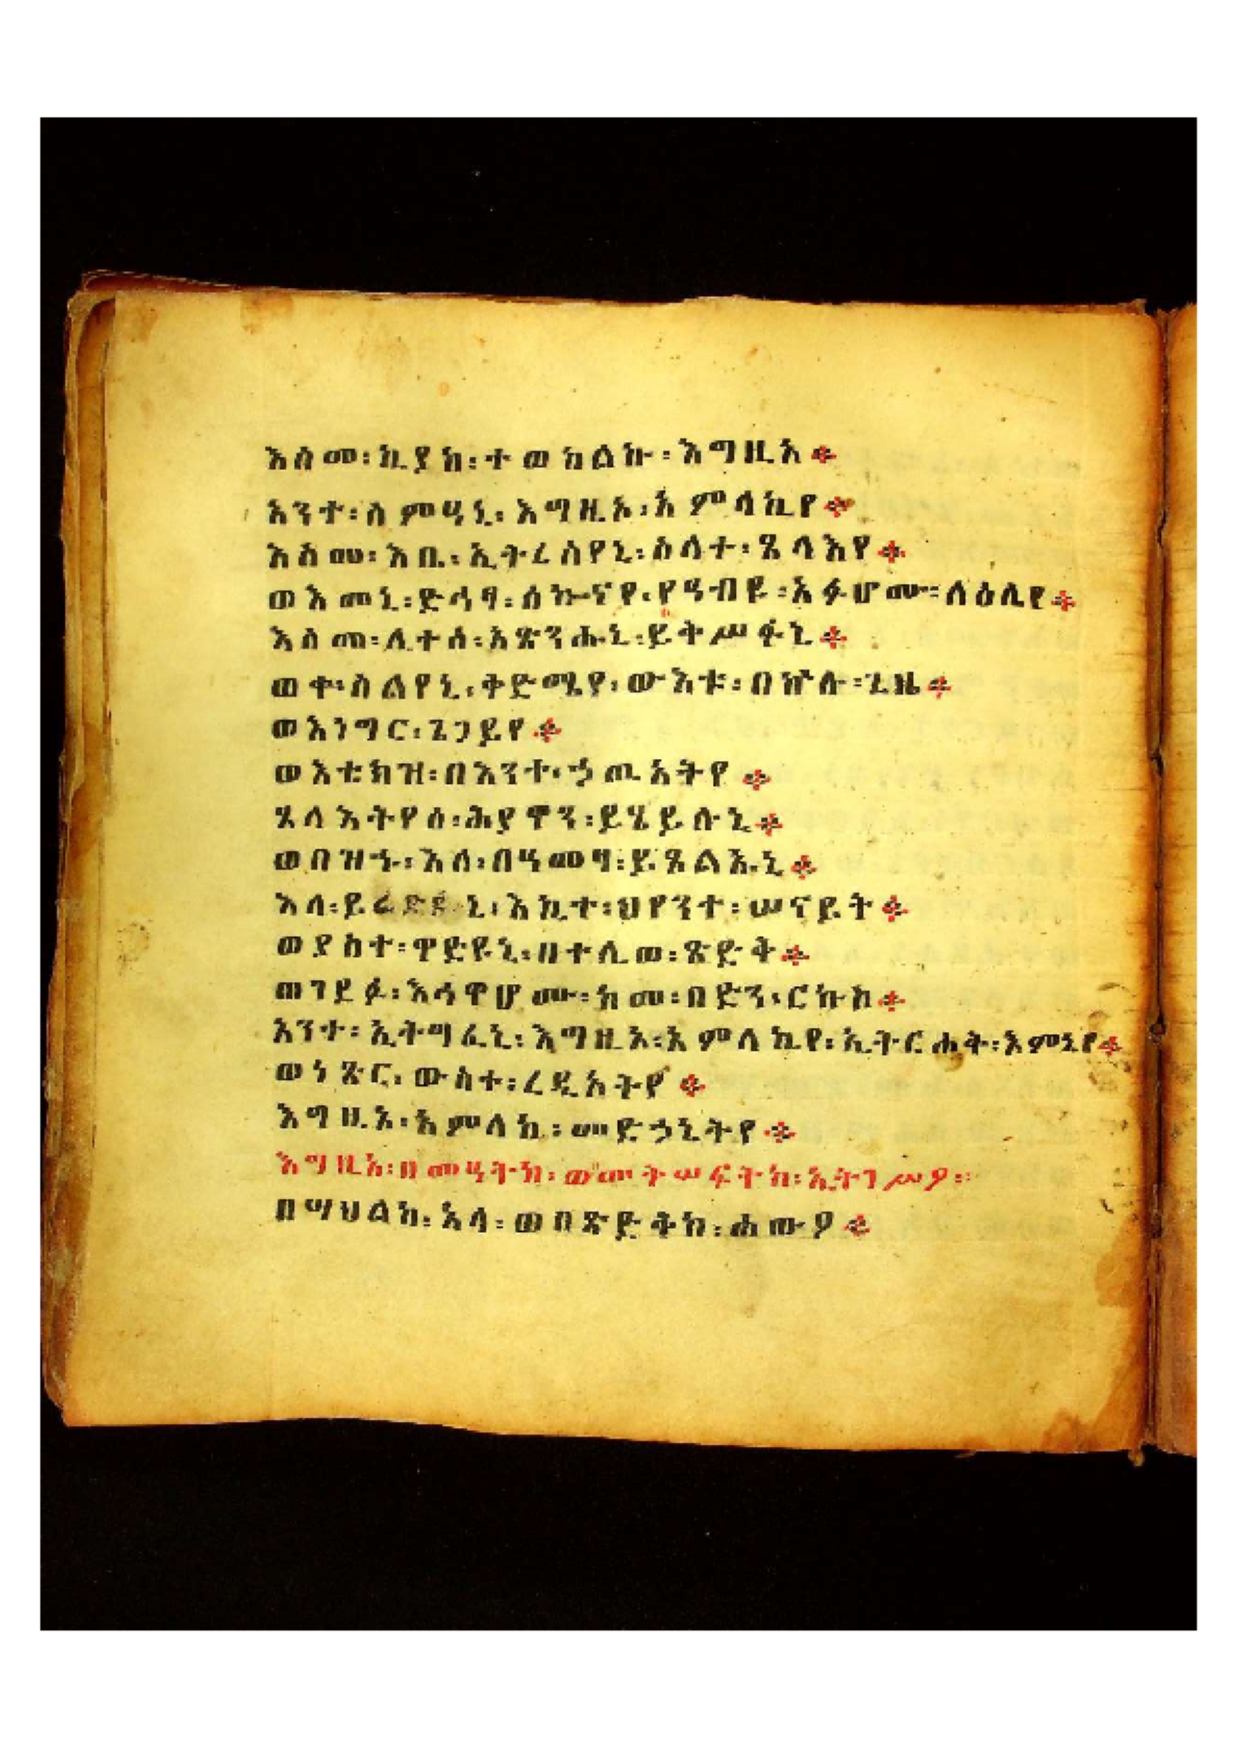 እስመ፡ኪያከ፡ተወከልኩ፡እግዚአ።
አንተ፡ስምዓኒ፡እግዚኦ፡አምላኪየ።
እስመ፡እቤ፡ኢትረስየኒ፡ስላተ፡ጸላእየ።
ወእመኒ፡ድኅፃ፡ሰኰናየ፡የዓብዩ፡አፉሆሙ፡ላዕሌየ።
እስመ፡ሊተሰ፡አጽንሑኒ፡ይትሥፋኒ።
ወቀ፡ስልየኒ፡ቅድሜየ፡ውእቱ፡በኵሉ፡ጊዜ።
ወእነግር፡ጌጋይየ።
ወእቴክዝ፡በእንተ፡ኃጢአትየ።
ጸላእትየሰ፡ሕያዋን፡ይሄይሉኒ።
ወበዝኁ፡እለ፡በዓመፃ፡ይጸልኡኒ።
እለ፡ይፈድዩኒ፡እኪተ፡ህየንተ፡ሠናይት።
ወያስተ፡ዋድዩኒ፡ዘተሊወ፡ጽድቅ።
ወገደፉ፡እኅዋሆሙ፡ከመ፡በድን፡ርኩስ።
አንተ፡ኢትግፈኒ፡እግዚኦ፡አምላኪየ፡ኢትርሐቅ፡እምኔየ።
ወነጽር፡ውስተ፡ረዲአትየ።
እግዚኦ፡አምላከ፡መድኃኒትየ።
እግዚአ፡በመዓትከ፡ወመትሠፍትከ፡ኢትገሥፆ፡
በሣህልከ፡አላ፡ወበጽድቅከ፡ሐውፆ።